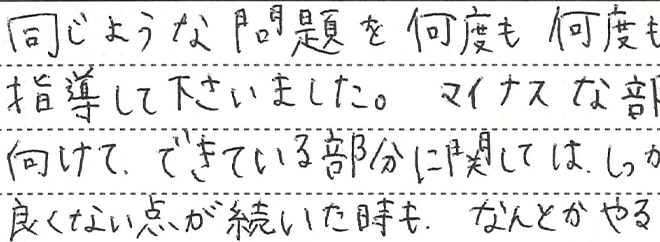 同じような問題を何度も何度も
指導して下さいました。マイナスな部
向けて、できている部分に関しては、しっか
良くない点が続いた時も、なんとかやる